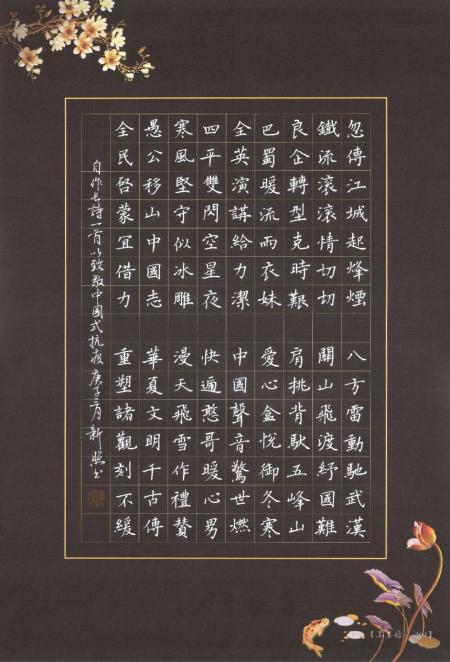 忽傳江城起烽煙 八方雷動馳武漢
鐵流滾滾情切切 關山飛渡紓國難
良企轉型克時艱 肩挑背馱五峰山
巴蜀暖流雨衣妹 愛心盒悅御冬寒
全英演講給力潔 中國聲音驚世燃
四平雙閃空星夜 快遞憨哥暖心男
寒風堅守似冰雕 漫天飛雪作禮贊
愚公移山中國志 華夏文明千古傳
全民啓蒙宜借力 重塑諸觀刻不緩
自作詩一首以致敬中國式抗疫 庚子月 新照书